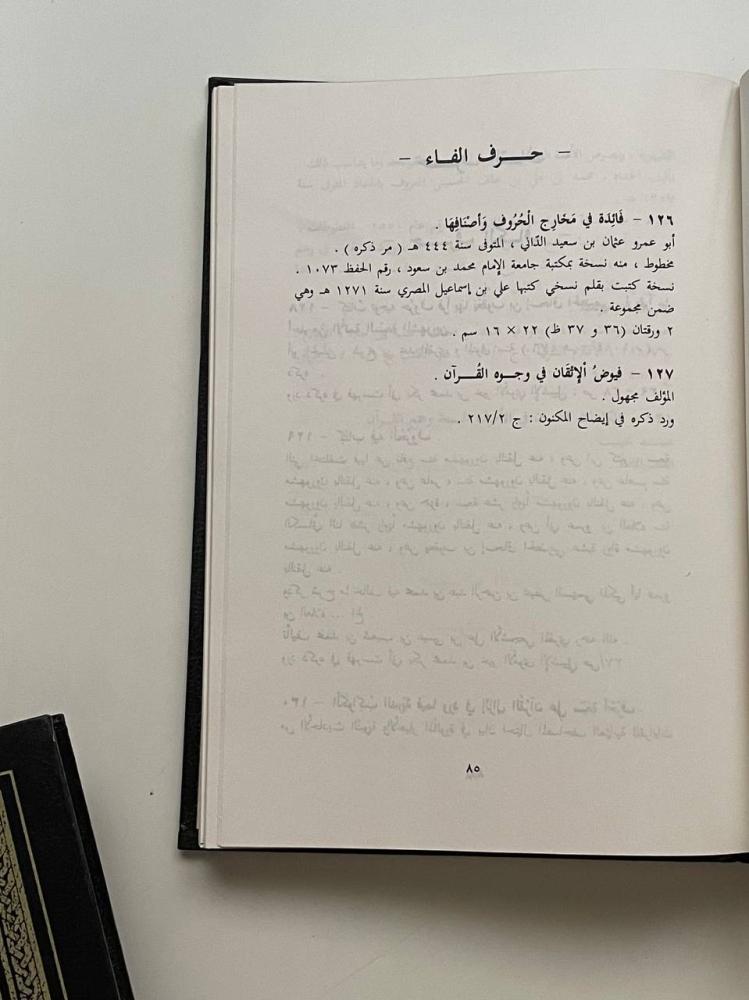 – حـــرف الفـاء –
١٢٦ – فَائِدَة في مَخَارِج الْحُرُوف وَأَصْنَافِهَا .
أبو عمرو عثمان بن سعيد الدّاني ، المتوفى سنة ٤٤٤ هـ ( مر ذكره ) .
مخطوط ، منه نسخة بمكتبة جامعة الإمام محمد بن سعود ، رقم الحفظ ١٠٧٣ .
نسخة كتبت بقلم نسخي كتبها علي بن إسماعيل المصري سنة ١٢٧١ هـ وهي
ضمن مجموعة .
٢ ورقتان (٣٦ و ٣٧ ظ) ٢٢ × ١٦ سم .
١٢٧ – فيوضُ ألإتْقَان في وجـوه القُـرآن .
المؤلف مجهول .
ورد ذكره في إيضاح المكنون : ج ٢١٧/٢ .
٨٥